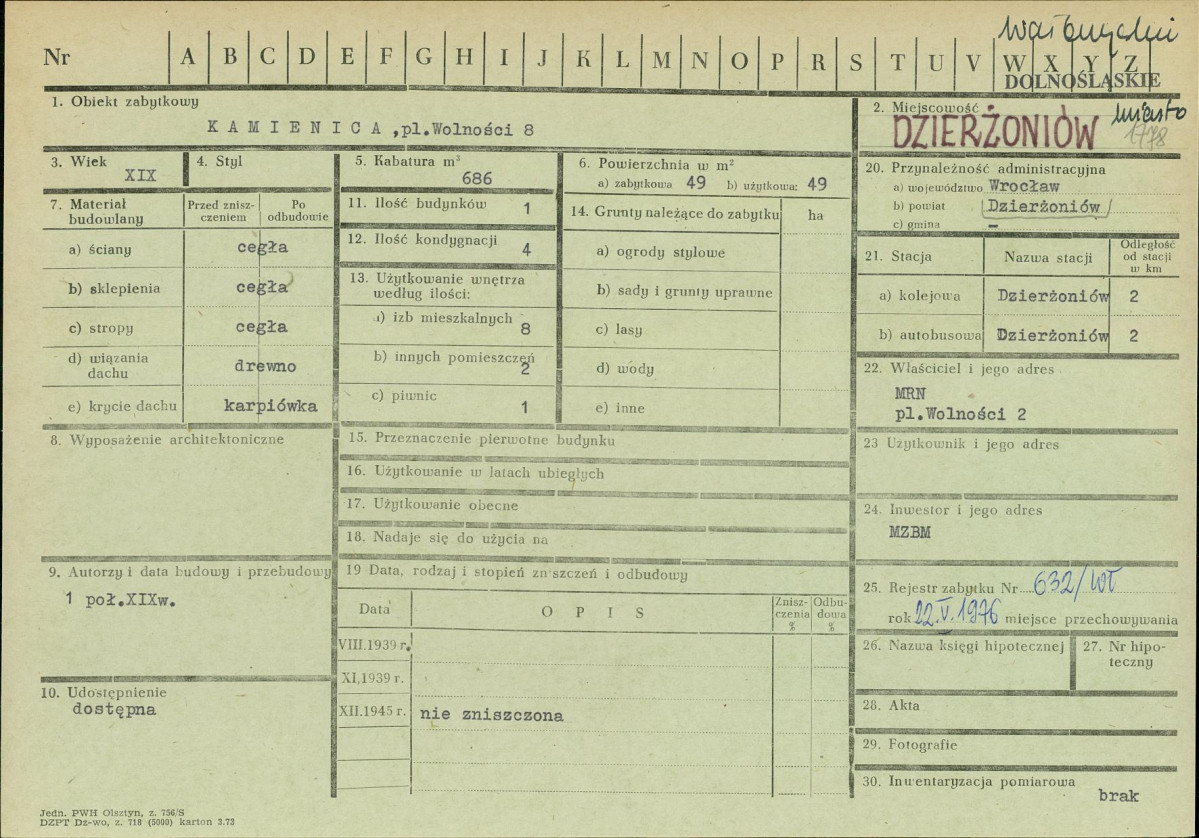 wałbrzyskie
Nr A B C D E F G H I J K L M N O P R S T U V W X Y Z
DOLNOŚLĄSKIE
1. Obiekt zabytkowy
KAMIENICA, pl.Wolności 8
2. Miejscowość
miasto
DZIERŻONIÓW
1778
3. Wiek
XIX
4. Styl
5. Kabatura m³
686
6. Powierzchnia w m²
a) zabytkowa 49 b) użytkowa: 49
7. Materiał budowlany
Przed znisz-
czeniem
Po
odbudowie
a) ściany cegła
b) sklepienia cegła
c) stropy cegła
d) wiązania
dachu drewno
e) krycie dachu karpiówka
8. Wyposażenie architektoniczne
9. Autorzy i data budowy i przebudowy
1 poł.XIXw.
10. Udostępnienie
dostępna
11. Ilość budynków 1
12. Ilość kondygnacji
4
13. Użytkowanie wnętrza
według ilości:
a) izb mieszkalnych 8
b) innych pomieszczeń
2
c) piwnic
1
14. Grunty należące do zabytku ha
a) ogrody stylowe
b) sady i grunty uprawne
c) lasy
d) wody
e) inne
15. Przeznaczenie pierwotne budynku
16. Użytkowanie w latach ubiegłych
17. Użytkowanie obecne
18. Nadaje się do użycia na
19 Data, rodzaj i stopień zniszczeń i odbudowy
Data OPIS
Znisz-
czenia
%
Odbu-
dowa
%
VIII.1939 r.
XI,1939 r.
XII.1945 r. nie zniszczona
20. Przynależność administracyjna
a) województwo Wrocław
b) powiat Dzierżoniów
c) gmina –
21. Stacja Nazwa stacji
Odległość
od stacji
w km
a) kolejowa Dzierżoniów 2
b) autobusowa Dzierżoniów 2
22. Właściciel i jego adres
MRN
pl.Wolności 2
23 Użytkownik i jego adres
24. Inwestor i jego adres
MZBM
25. Rejestr zabytku Nr 632/Wł
rok 22.V.1976 miejsce przechowywania
26. Nazwa księgi hipotecznej
27. Nr hipo-
teczny
28. Akta
29. Fotografie
30. Inwentaryzacja pomiarowa
brak
Jedn. PWH Olsztyn, z. 756/S
DZPT Dz-wo, z. 718 (5000) karton 3.73